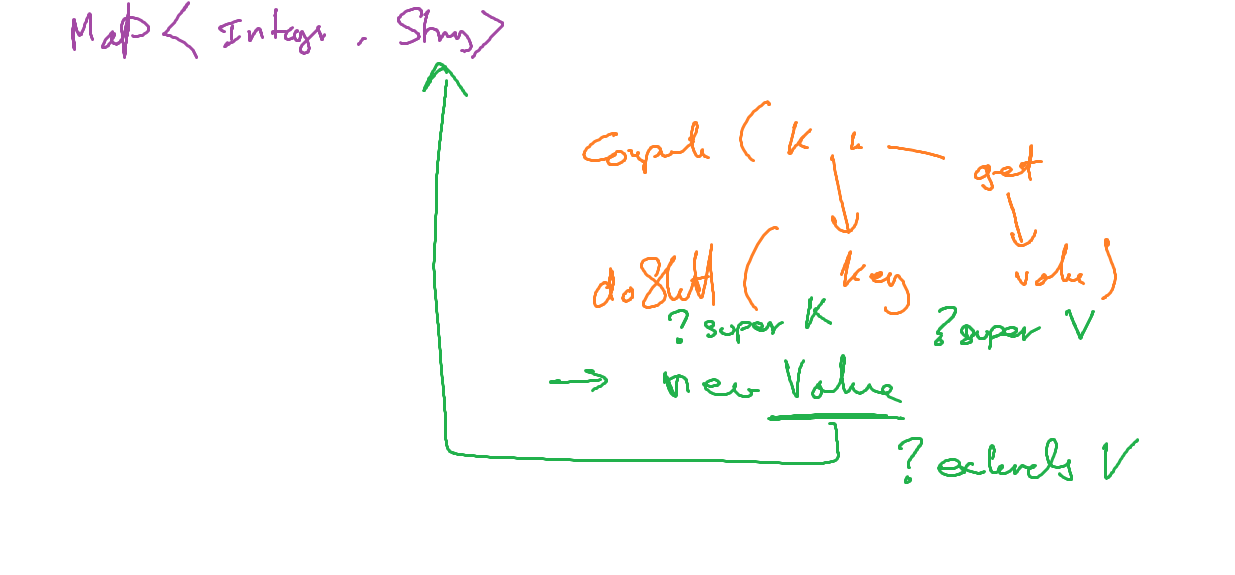 Map < Integer , String >
compute ( K k get
doStuff ( key value )
? super K ? super V
→ new Value
? extends V